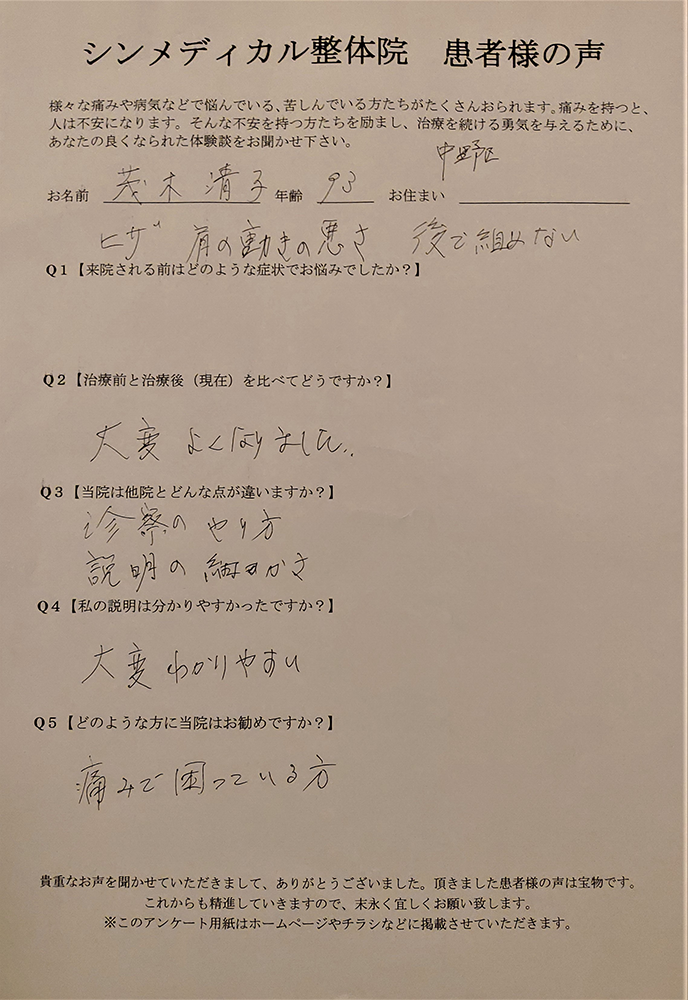 シンメディカル整体院　患者様の声
様々な痛みや病気などで悩んでいる、苦しんでいる方たちがたくさんおられます。痛みを持つと、
人は不安になります。そんな不安を持つ方たちを励まし、治療を続ける勇気を与えるために、
あなたの良くなられた体験談をお聞かせ下さい。
お名前 茂木清子 年齢 93 お住まい 中野区
ヒザ 肩の動きの悪さ 後で組めない
Q1【来院される前はどのような症状でお悩みでしたか？】
Q2【治療前と治療後（現在）を比べてどうですか？】
大変よくなりました..
Q3【当院は他院とどんな点が違いますか？】
診察のやり方
説明の細かさ
Q4【私の説明は分かりやすかったですか？】
大変わかりやすい
Q5【どのような方に当院はお勧めですか？】
痛みで困っている方
貴重なお声を聞かせていただきまして、ありがとうございました。頂きました患者様の声は宝物です。
これからも精進していきますので、末永く宜しくお願い致します。
※このアンケート用紙はホームページやチラシなどに掲載させていただきます。